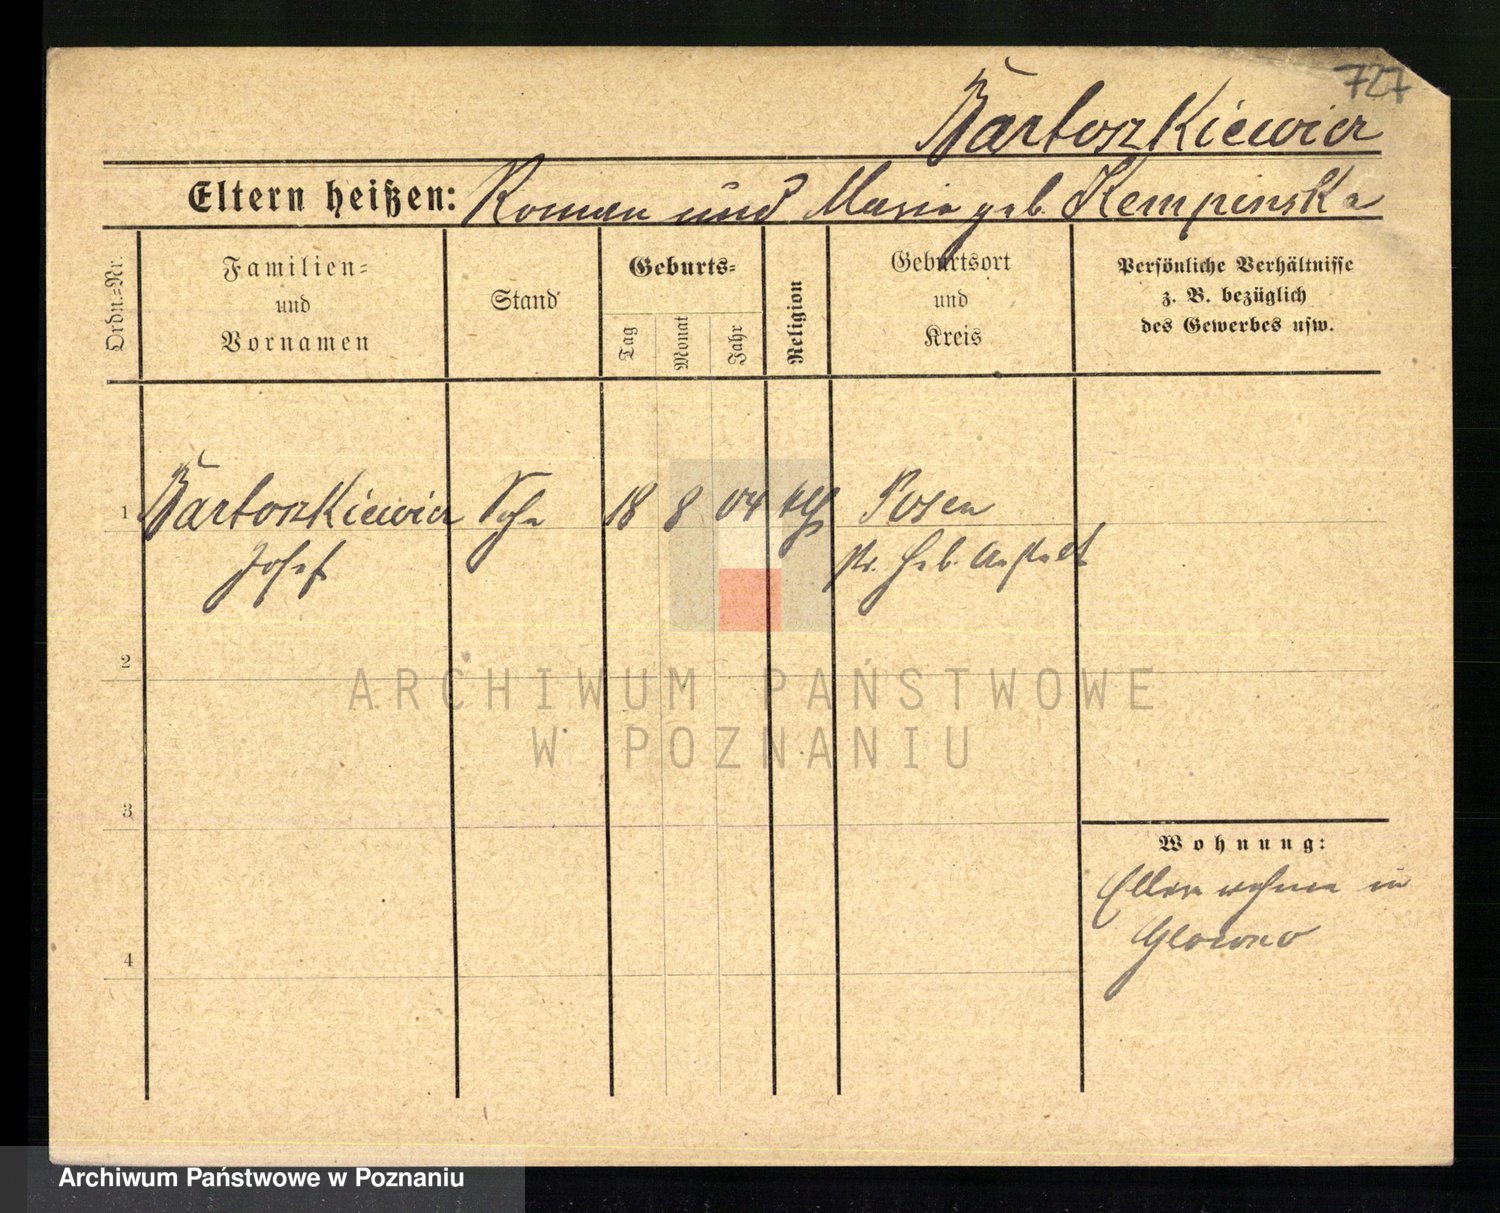 727
Bartoszkiewicz
Eltern heißen: Roman und Maria geb. Kempinska
Ordn.=Nr.
Familien=
und
Vornamen
Stand
Geburts=
Tag
Monat
Jahr
Religion
Geburtsort
und
Kreis
Persönliche Verhältnisse
z. B. bezüglich
des Gewerbes usw.
1 Bartoszkiewicz Sohn 18 8 04 kth Posen
Josef Pr. Heb. Anstalt
2
ARCHIWUM PAŃSTWOWE
W POZNANIU
3
Wohnung:
Eltern wohnen in
Glowno
4
Archiwum Państwowe w Poznaniu